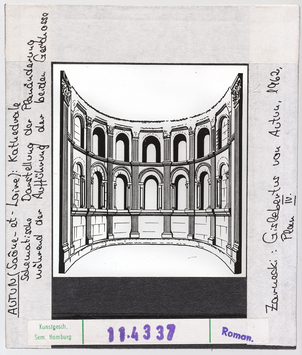 AUTUN (Saône-et-Loire): Kathedrale
Schematische Darstellung der Planänderung
während der Aufführung der beiden Geschosse
Zarnecki: Gislebertus von Autun, 1962,
Plan IV.
Kunstgesch.
Sem. Hamburg
11.4337
Roman.